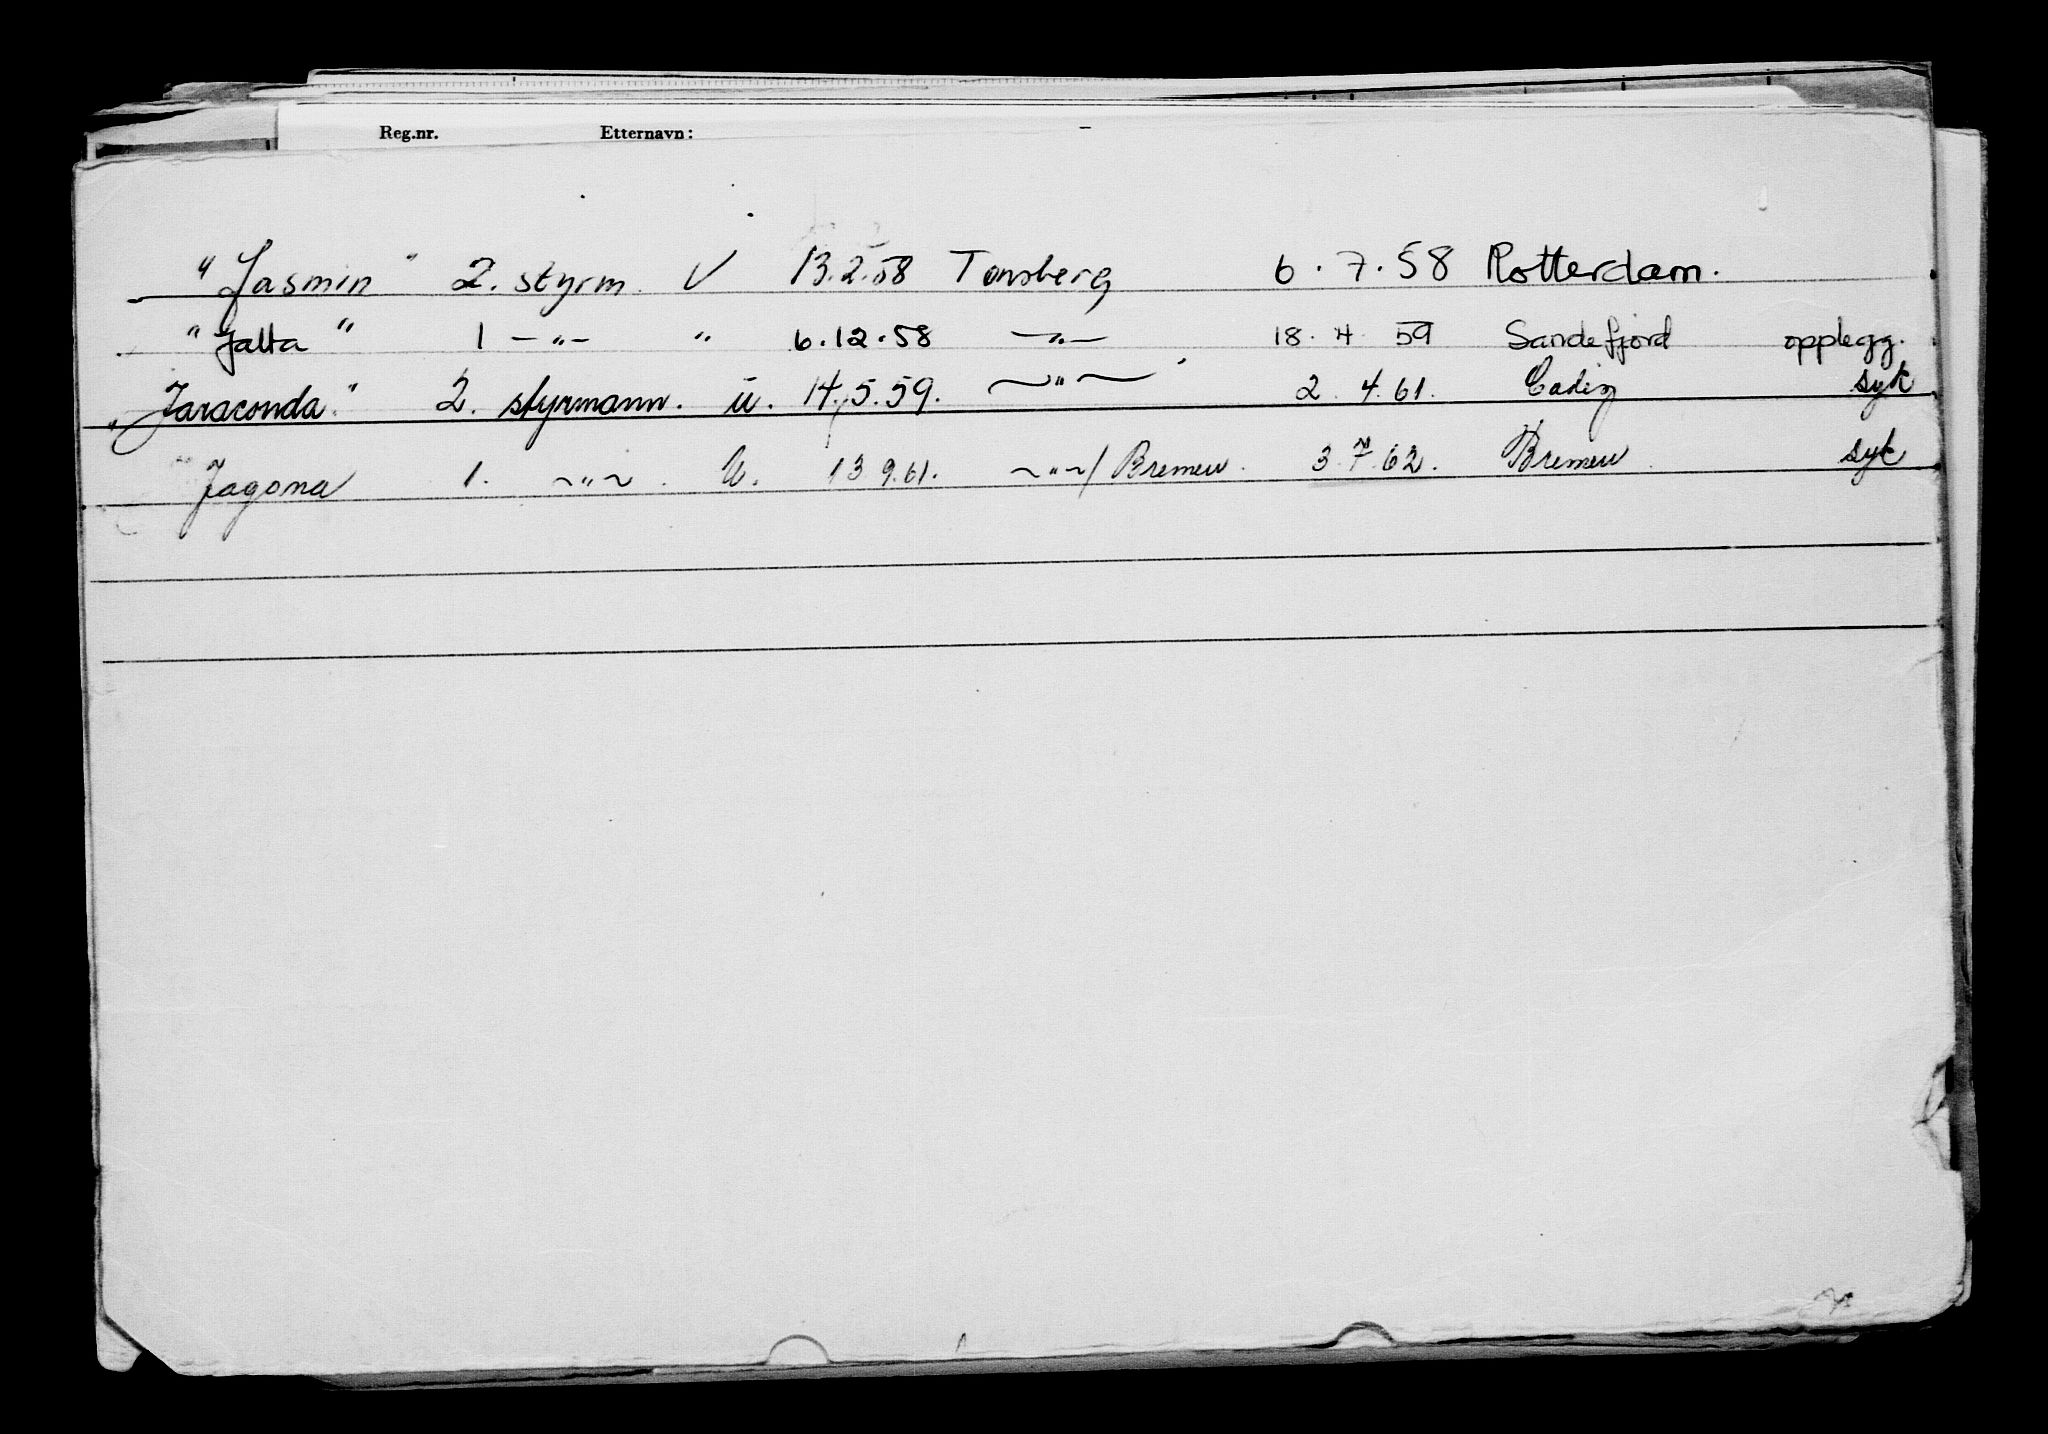 Reg.nr. Etternavn:
"Jasmin" 2. styrm. V 13.2.58 Tønsberg 6.7.58 Rotterdam.
"Jalta" 1 -"- " 6.12.58 -"- 18.4.59 Sandefjord opplegg.
"Jaraconda" 2. styrmann. u. 14.5.59. -"- 2.4.61. Cadiz syk
Jagona 1. -"- . U. 13.9.61. -"-/ Bremen. 3.7.62. Bremen. syk